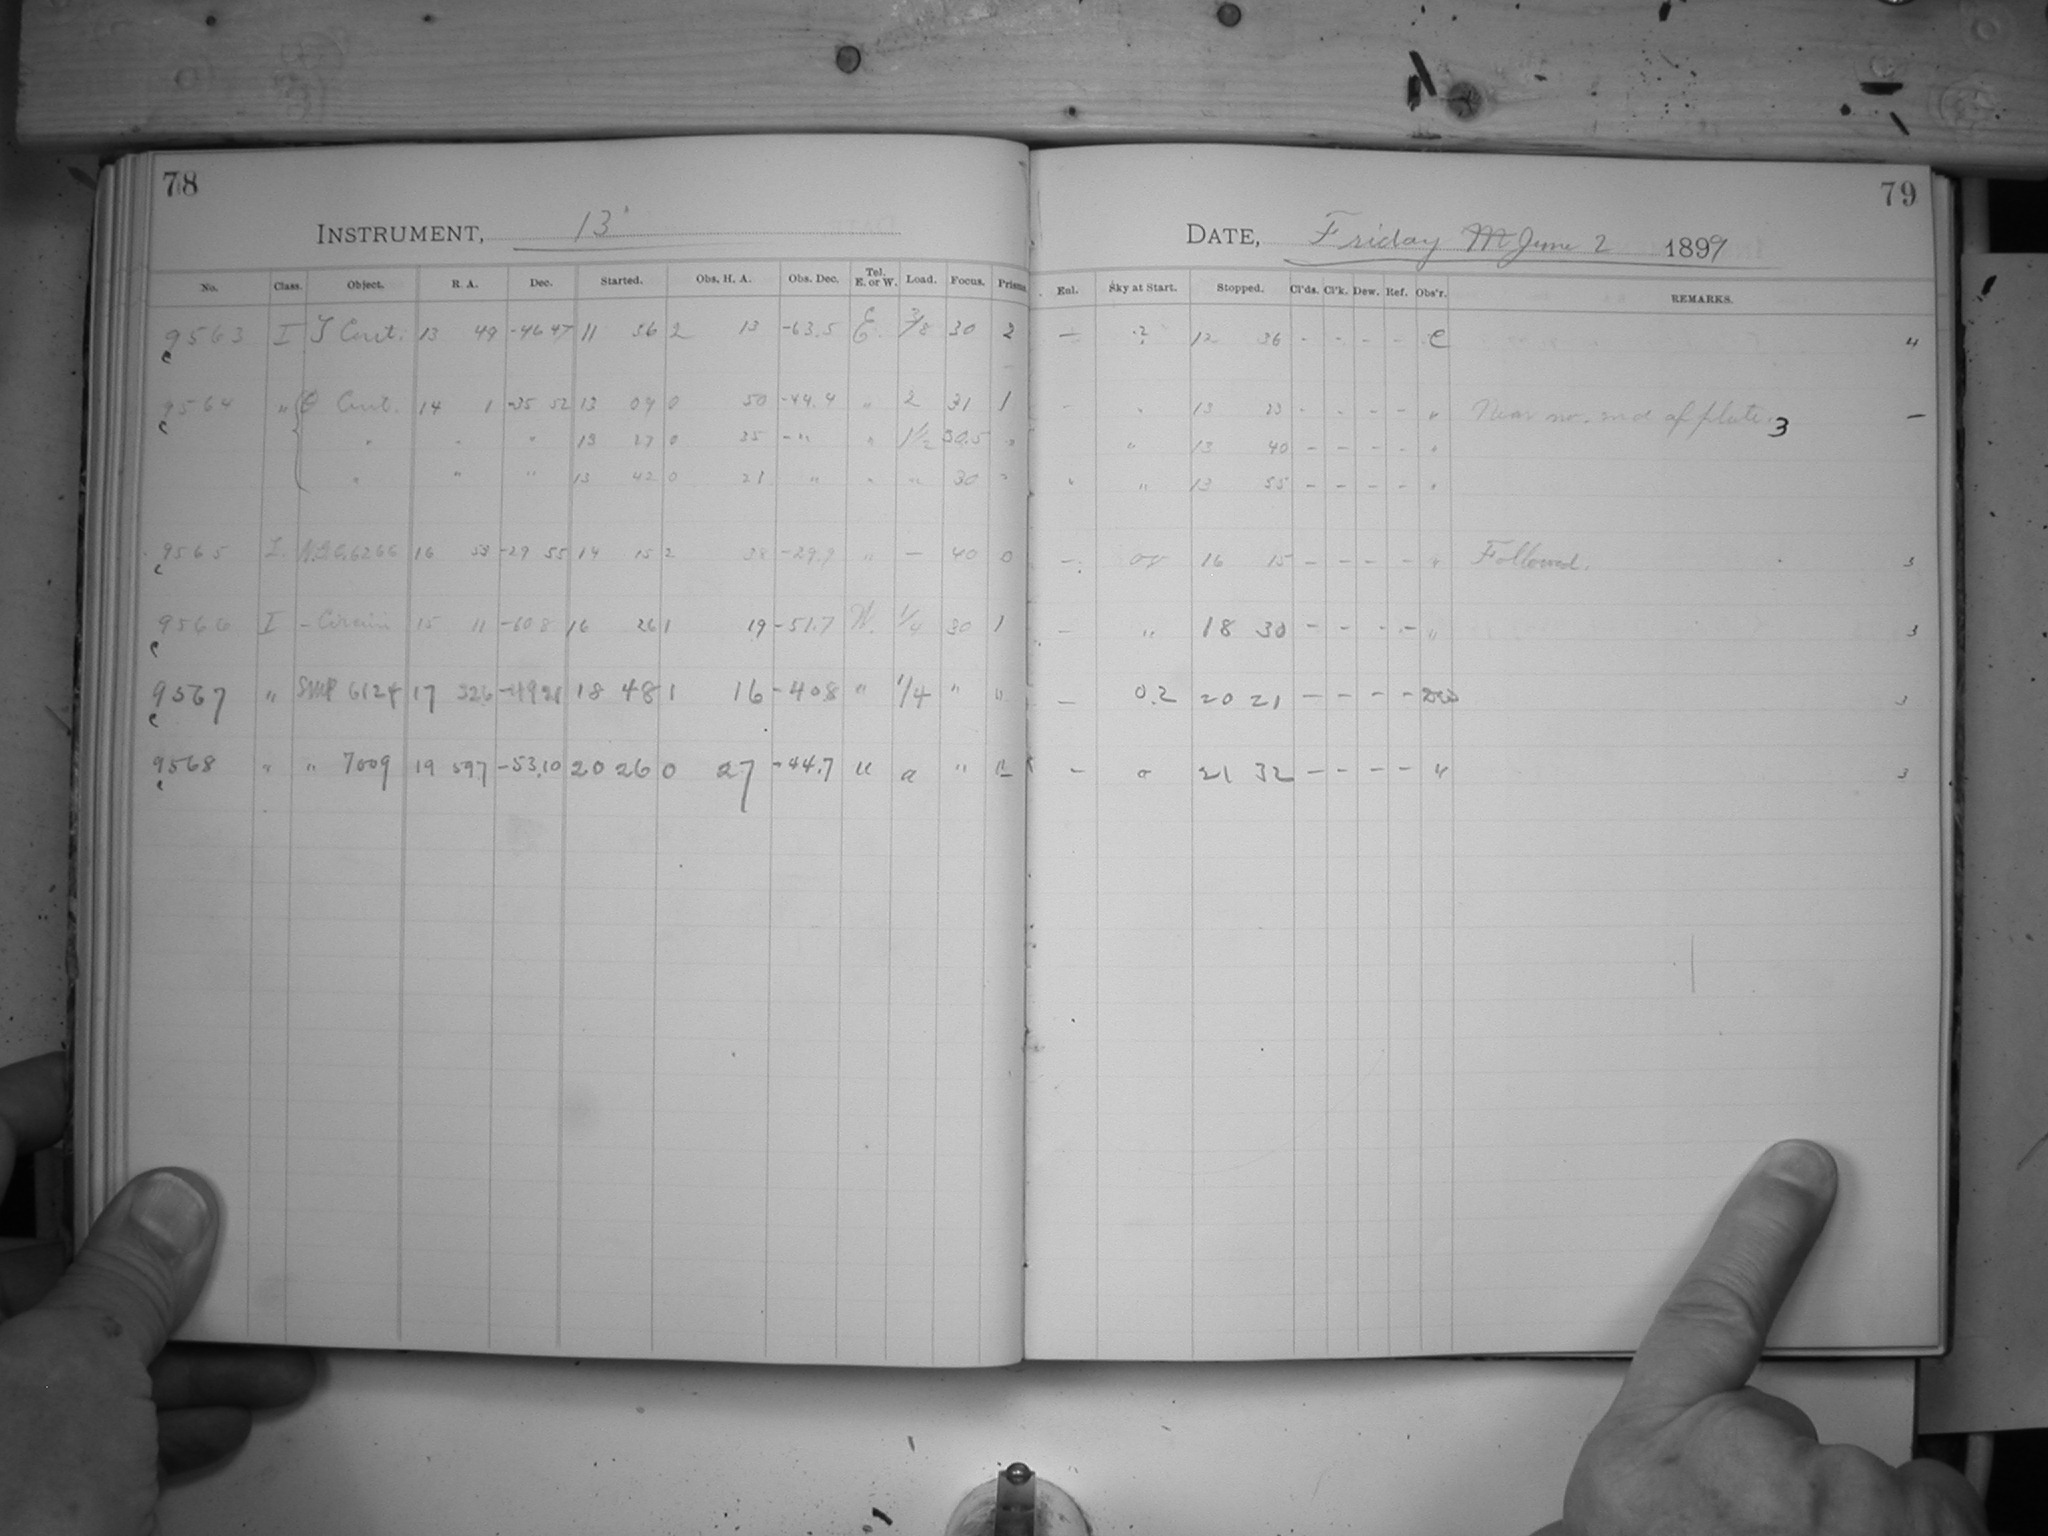 78
INSTRUMENT, 13"
No. Class. Object. R. A. Dec. Started. Obs. H. A. Obs. Dec. Tel. E. or W. Load. Focus. Prisms
9563 I T Cent. 13 49 -46 47 11 36 2 13 -63.5 E. 3/8 30 2
9564 " θ Cent. 14 1 -35 52 13 09 0 50 -44.4 " 2 31 1
" " " 13 27 0 35 - " " 1 1/2 30.5 "
" " " 13 42 0 21 " " " 30 "
9565 I. N.G.C. 6266 16 53 -29 55 14 15 2 38 -29.9 " — 40 0
9566 I - Circini 15 11 -60 8 16 26 1 19 -51.7 W. 1/4 30 1
9567 " SMP 6124 17 32.6 -49 21 18 48 1 16 -40.8 " 1/4 " "
9568 " " 7009 19 59.7 -53.10 20 26 0 27 -44.7 " a " "
79
DATE, Friday June 2 1899
Enl. Sky at Start. Stopped. Cl'ds. Cl'k. Dew. Ref. Obs'r. REMARKS.
— .2 12 36 - - - - C 4
- " 13 23 - - - - " Near no. end of plate. 3 —
" 13 40 - - - - "
" " 13 55 - - - - "
- 16 15 - - - - " Followed. 3
- " 18 30 - - - - " 3
— 0.2 20 21 - - - - 3
- 0 21 32 - - - - " 3